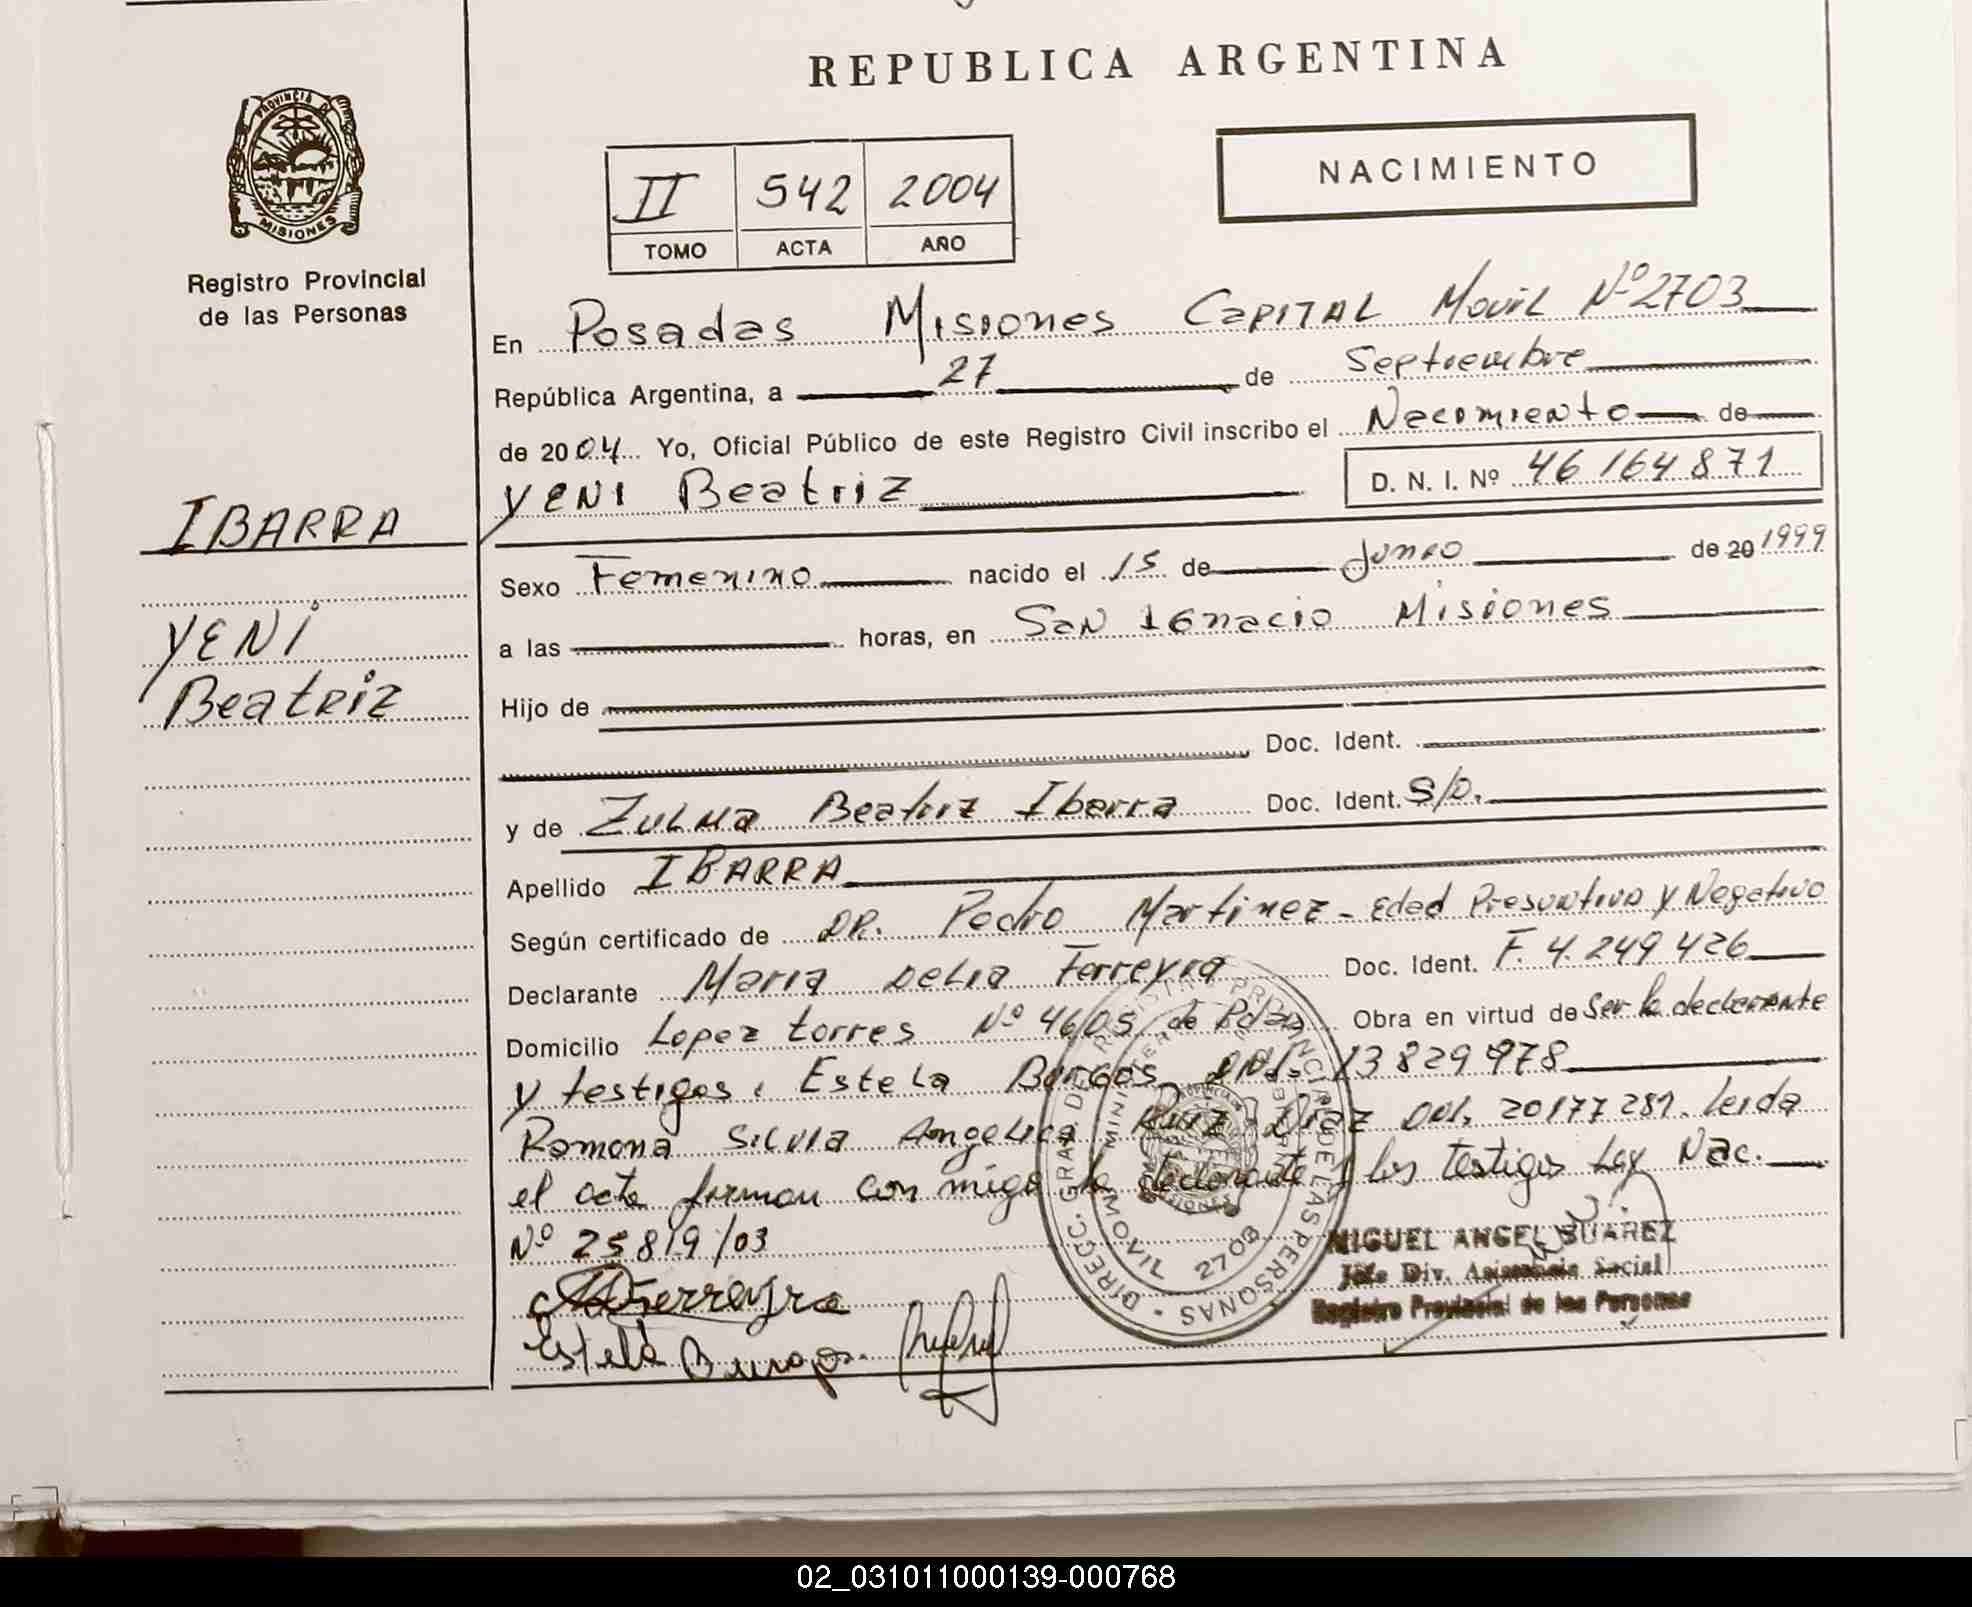 REPUBLICA ARGENTINA
PROVINCIA DE
MISIONES
Registro Provincial
de las Personas
NACIMIENTO
II 542 2004
TOMO ACTA AÑO
En Posadas Misiones Capital Movil Nº 2703
República Argentina, a 27 de Septiembre
de 2004 Yo, Oficial Público de este Registro Civil inscribo el Nacimiento de
YENI Beatriz D. N. I. Nº 46 164 871
IBARRA
YENI
Beatriz
Sexo Femenino nacido el 15 de Junio de 20 1999
a las horas, en San Ignacio Misiones
Hijo de
Doc. Ident.
y de Zulma Beatriz Ibarra Doc. Ident. S/D.
Apellido IBARRA
Según certificado de DR. Pedro Martinez - Edad Presuntiva y Negativo
Declarante Maria Delia Ferreyra Doc. Ident. F. 4.249 426
Domicilio Lopez torres Nº 4605 de Pdas Obra en virtud de Ser la declarante
y testigos: Estela Burgos DNI. 13 829 978
Ramona Silvia Angelica Ruiz Diaz DNI. 20177 281. Leida
el acta firman con migo la declarante y los testigos Ley Nac.
Nº 25819/03
Ferreyra
Estela Burgos
DIRECC. GRAL. DE REGISTRO PROVINCIAL DE LAS PERSONAS
MOVIL 2703
MIGUEL ANGEL SUAREZ
Jefe Div. Asistencia Social
Registro Provincial de las Personas
02_031011000139-000768